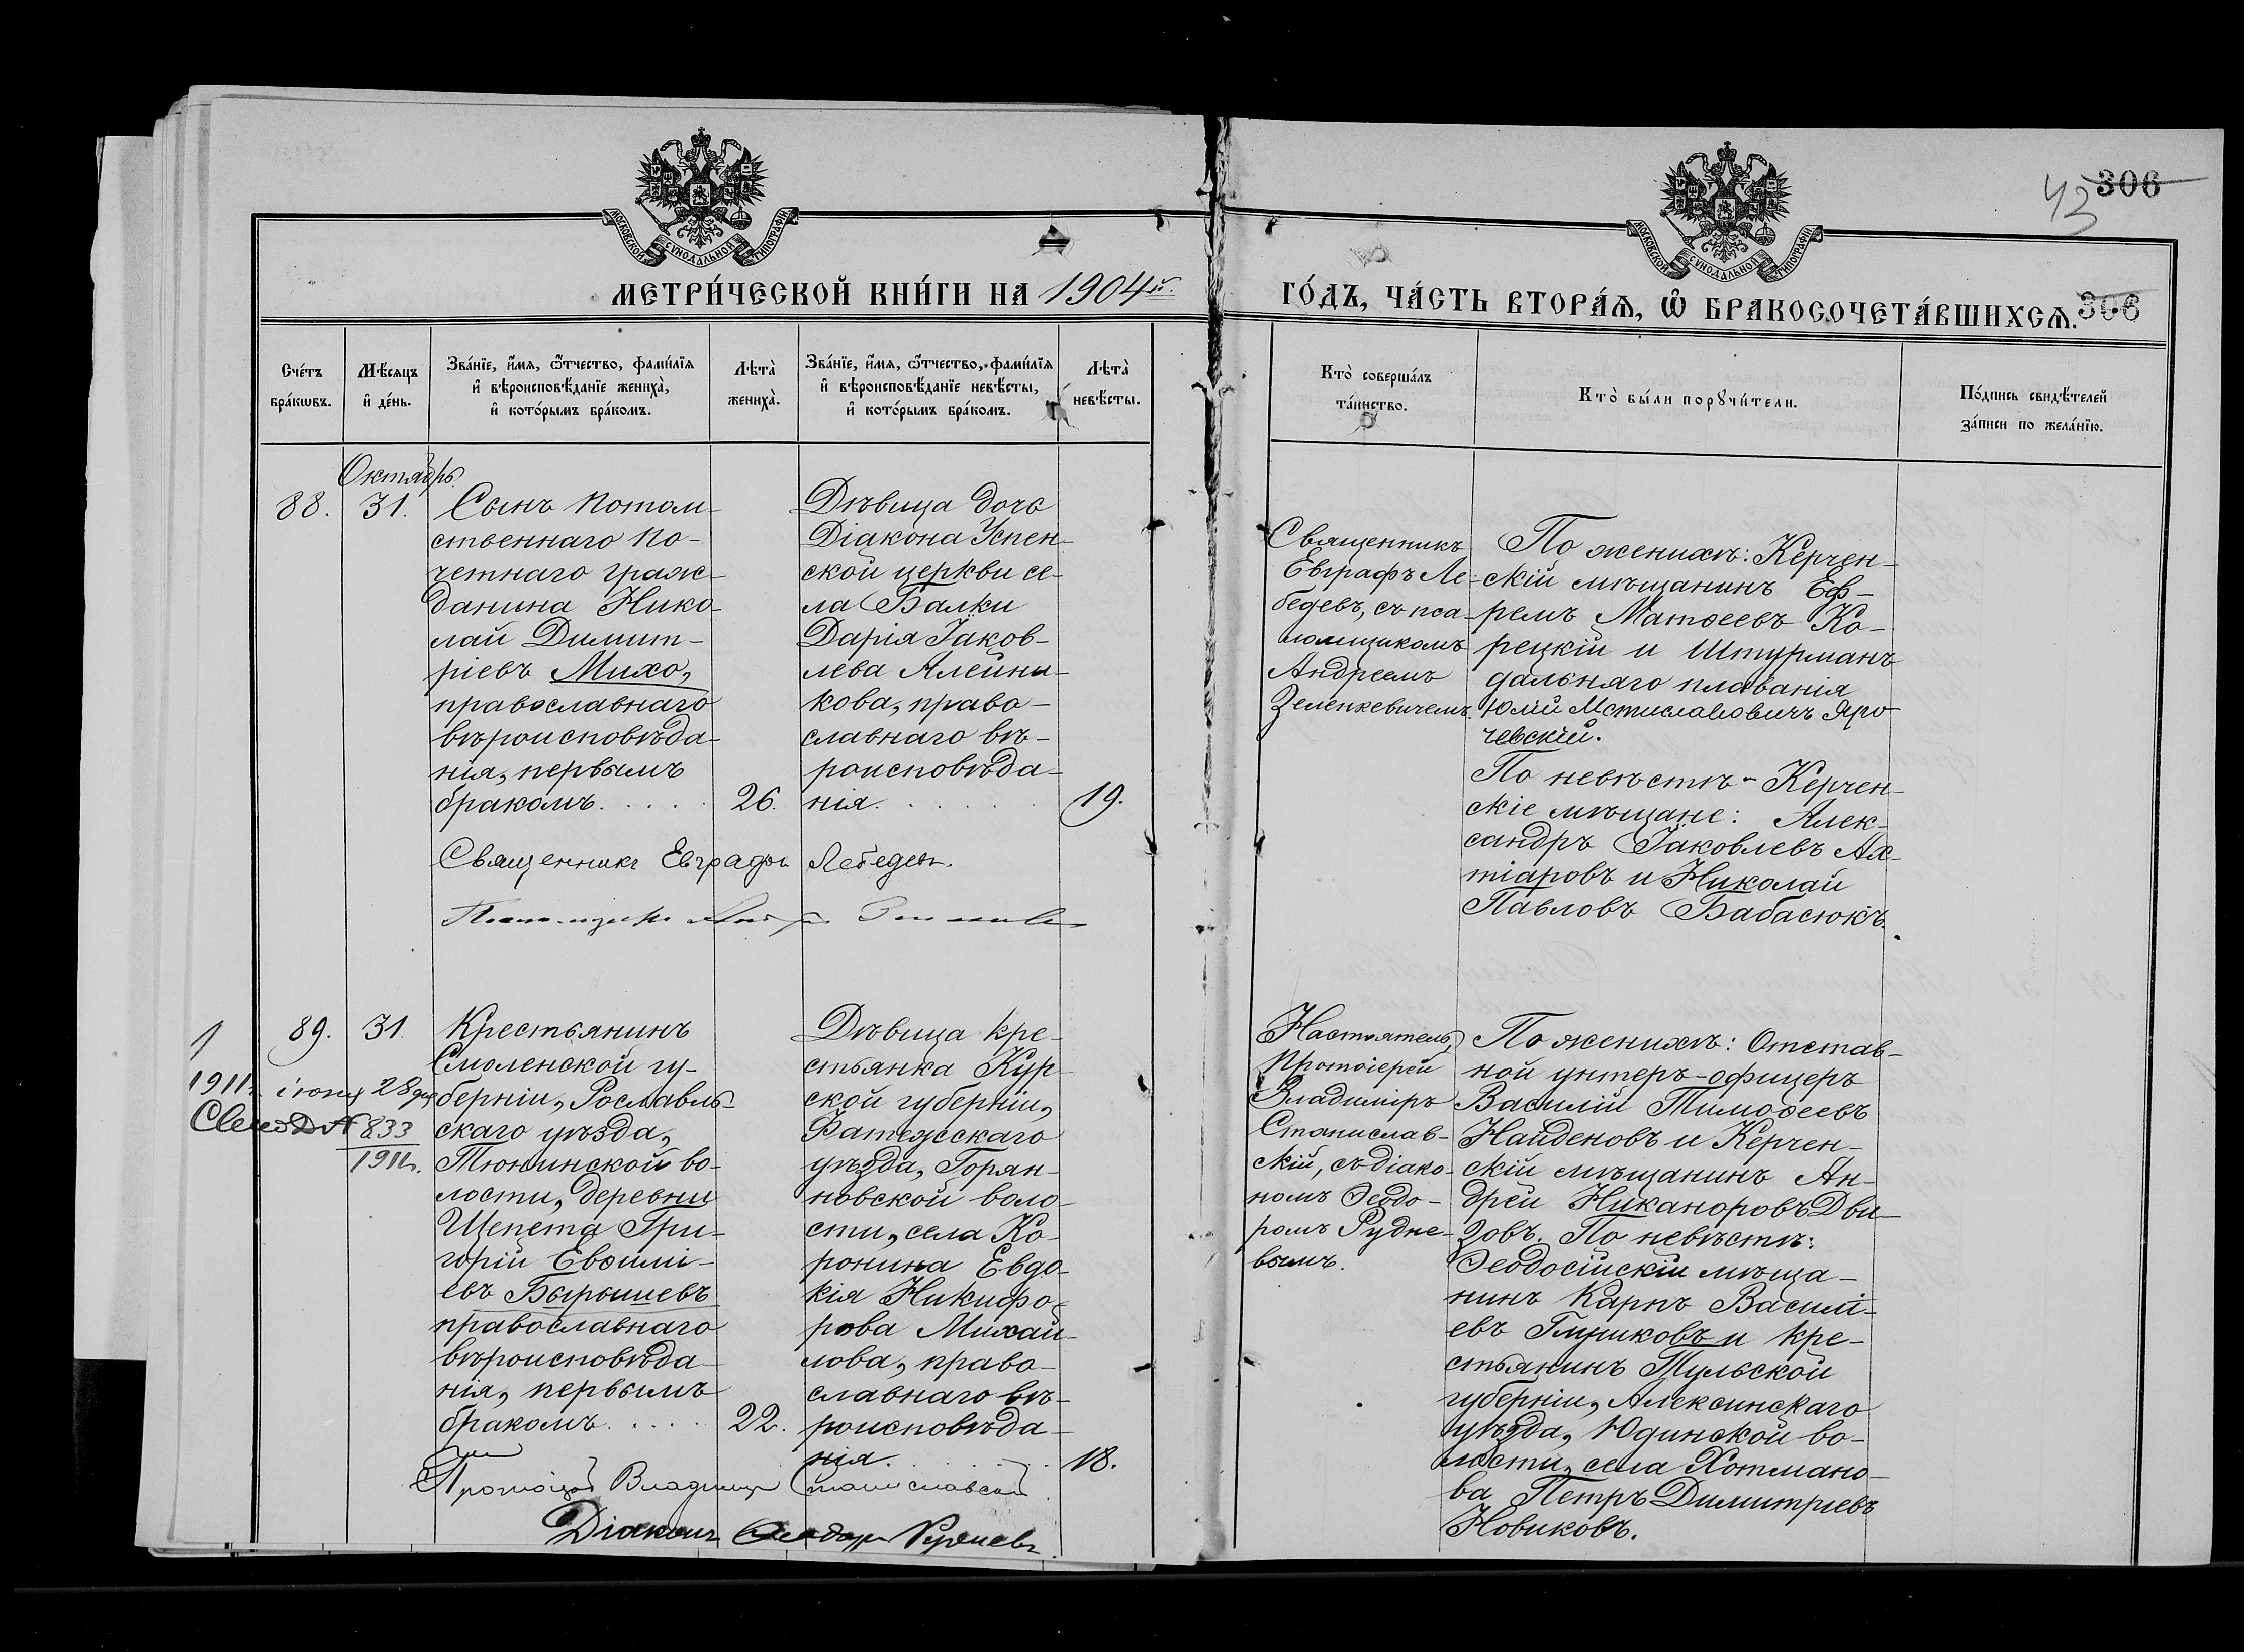 43 306
МОСКОВСКОЙ СУНОДАЛЬНОЙ ТИПОГРАФІИ
МОСКОВСКОЙ СУНОДАЛЬНОЙ ТИПОГРАФІИ
МЕТРИ́ЧЕСКОЙ КНИ́ГИ НА 1904й.
ГО́ДЪ, ЧА́СТЬ ВТОРА́Ѧ, Ѽ БРАКОСОЧЕТА́ВШИХСѦ.
306
Сче́тъ
бра́кѡвъ.
Мѣ́сяцъ
и҆ де́нь.
Зва́нїе, и҆́мя, ѻ҆́тчество, фами́лїя
и҆ вѣроисповѣ́данїе жениха̀,
и҆ кото́рымъ бра́комъ.
Лѣта̀
жениха̀.
Зва́нїе, и҆́мя, ѻ҆́тчество, фами́лїя
и҆ вѣроисповѣ́данїе невѣ́сты,
и҆ кото́рымъ бра́комъ.
Лѣта̀
невѣ́сты.
Кто̀ соверша́лъ
та́инство.
Кто̀ бы́ли порꙋчи́тели.
По́дпись свидѣ́телей
за́писи по жела́нїю.
Октябрь
88.
31.
Сынъ потом-
ственнаго по-
четнаго граж-
данина Нико-
лай Димит-
ріевъ Михо,
православнаго
вѣроисповѣда-
нія, первымъ
бракомъ. . . . .
26.
Дѣвица дочь
Діакона Успен-
ской церкви се-
ла Балки
Дарія Іаков-
лева Алейни-
кова, право-
славнаго вѣ-
роисповѣда-
нія. . . . . .
19.
Священникъ
Евграфъ Ле-
бедевъ, съ пса-
ломщикомъ
Андреемъ
Зеленкевичемъ.
По женихѣ: Керчен-
скій мѣщанинъ Еф-
ремъ Матѳеевъ Ко-
рецкій и Штурманъ
дальняго плаванія
Юлій Мстиславовичъ Яро-
чевскій.
По невѣстѣ - Керчен-
скіе мѣщане: Алек-
сандръ Іаковлевъ Ах-
тіаровъ и Николай
Павловъ Бабасюкъ.
Священникъ Евграфъ Лебедевъ.
1
1911г. іюня 28 дня
833
1911г.
89.
31.
Крестьянинъ
Смоленской гу-
берніи, Рославль-
скаго уѣзда,
Тюнинской во-
лости, деревни
Щепета Гри-
горій Евѳимі-
евъ Бырышевъ
православнаго
вѣроисповѣда-
нія, первымъ
бракомъ. . . . .
22.
Дѣвица кре-
стьянка Кур-
ской губерніи,
Фатежскаго
уѣзда, Горян-
новской воло-
сти, села Ко-
ронина Евдо-
кія Никифо-
рова Михай-
лова, право-
славнаго вѣ-
роисповѣда-
нія. . . . . .
18.
Настоятель,
Протоіерей
Владиміръ
Станислав-
скій, съ діако-
номъ Ѳеодо-
ромъ Рудне-
вымъ.
По женихѣ: Отстав-
ной унтеръ-офицеръ
Василій Тимоѳеевъ
Найденовъ и Керчен-
скій мѣщанинъ Ан-
дрей Никаноровъ Дви-
зовъ. По невѣстѣ:
Ѳеодосійскій мѣща-
нинъ Карпъ Василі-
евъ Глушковъ и кре-
стьянинъ Тульской
губерніи, Алексинскаго
уѣзда, Юдинской во-
лости, села Хотмано-
ва Петръ Димитріевъ
Новиковъ.
Протоіерей Владиміръ Станиславскій
Діаконъ Ѳеодоръ Рудневъ.